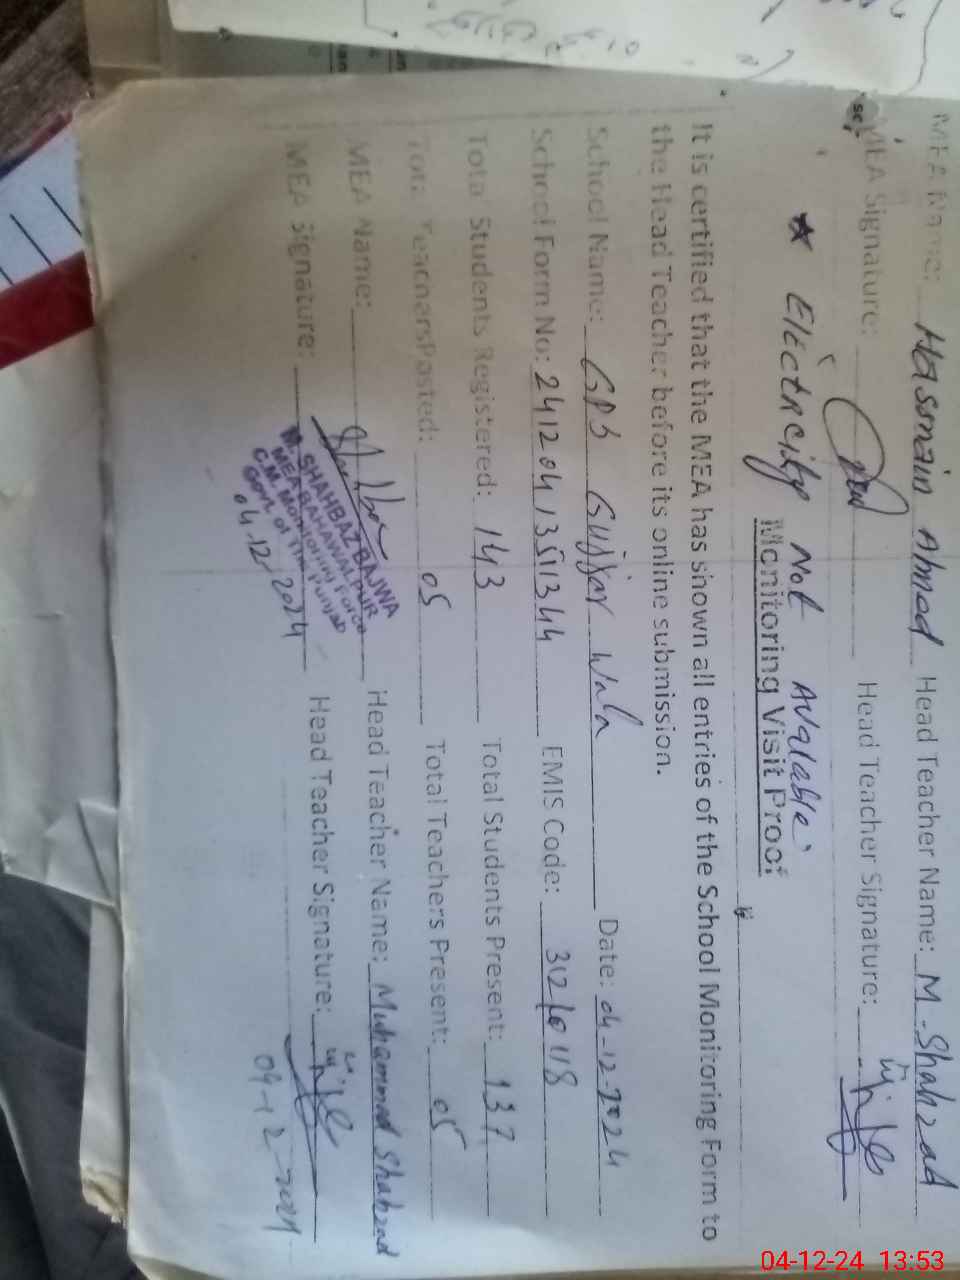 MEA Name: Hassnain Ahmed Head Teacher Name: M. Shahzad
MEA Signature: Head Teacher Signature:
★ Electrcity Not Avalable
Monitoring Visit Proof
It is certified that the MEA has shown all entries of the School Monitoring Form to
the Head Teacher before its online submission.
School Name: GPS Gujjar Wala Date: 04-12-2024
School Form No: 2412041351344 EMIS Code:
Total Students Registered: 143 Total Students Present: 137
Total Teachers Posted: 05 Total Teachers Present: 05
MEA Name: Head Teacher Name: Muhammad Shahzad
MEA Signature: Head Teacher Signature:
M. SHAHBAZ BAJWA
MEA BAHAWALPUR
C.M. Monitoring Force
Govt. of The Punjab
04.12.2024
04-12-2024
04-12-24 13:53